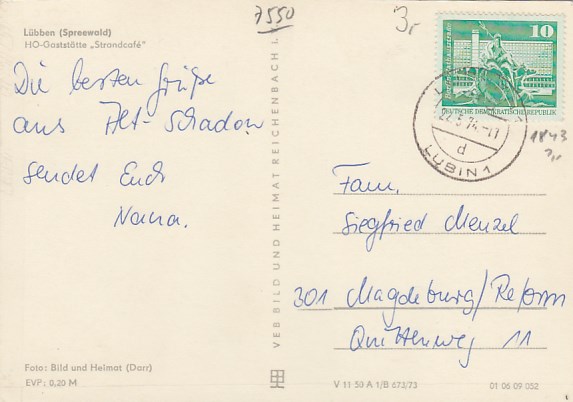 Lübben (Spreewald)
HO-Gaststätte „Strandcafé"
7550
3,-
10
DEUTSCHE DEMOKRATISCHE REPUBLIK
5.74-11
d
LUBIN 1
1843
Die besten Grüße
aus Alt-Schadow
sendet Euch
Nana.
VEB BILD UND HEIMAT REICHENBACH I.
Fam.
Siegfried Menzel
301 Magdeburg/Reform
Quittenweg 11
Foto: Bild und Heimat (Darr)
EVP: 0,20 M
V 11 50 A 1/B 673/73
01 06 09 052